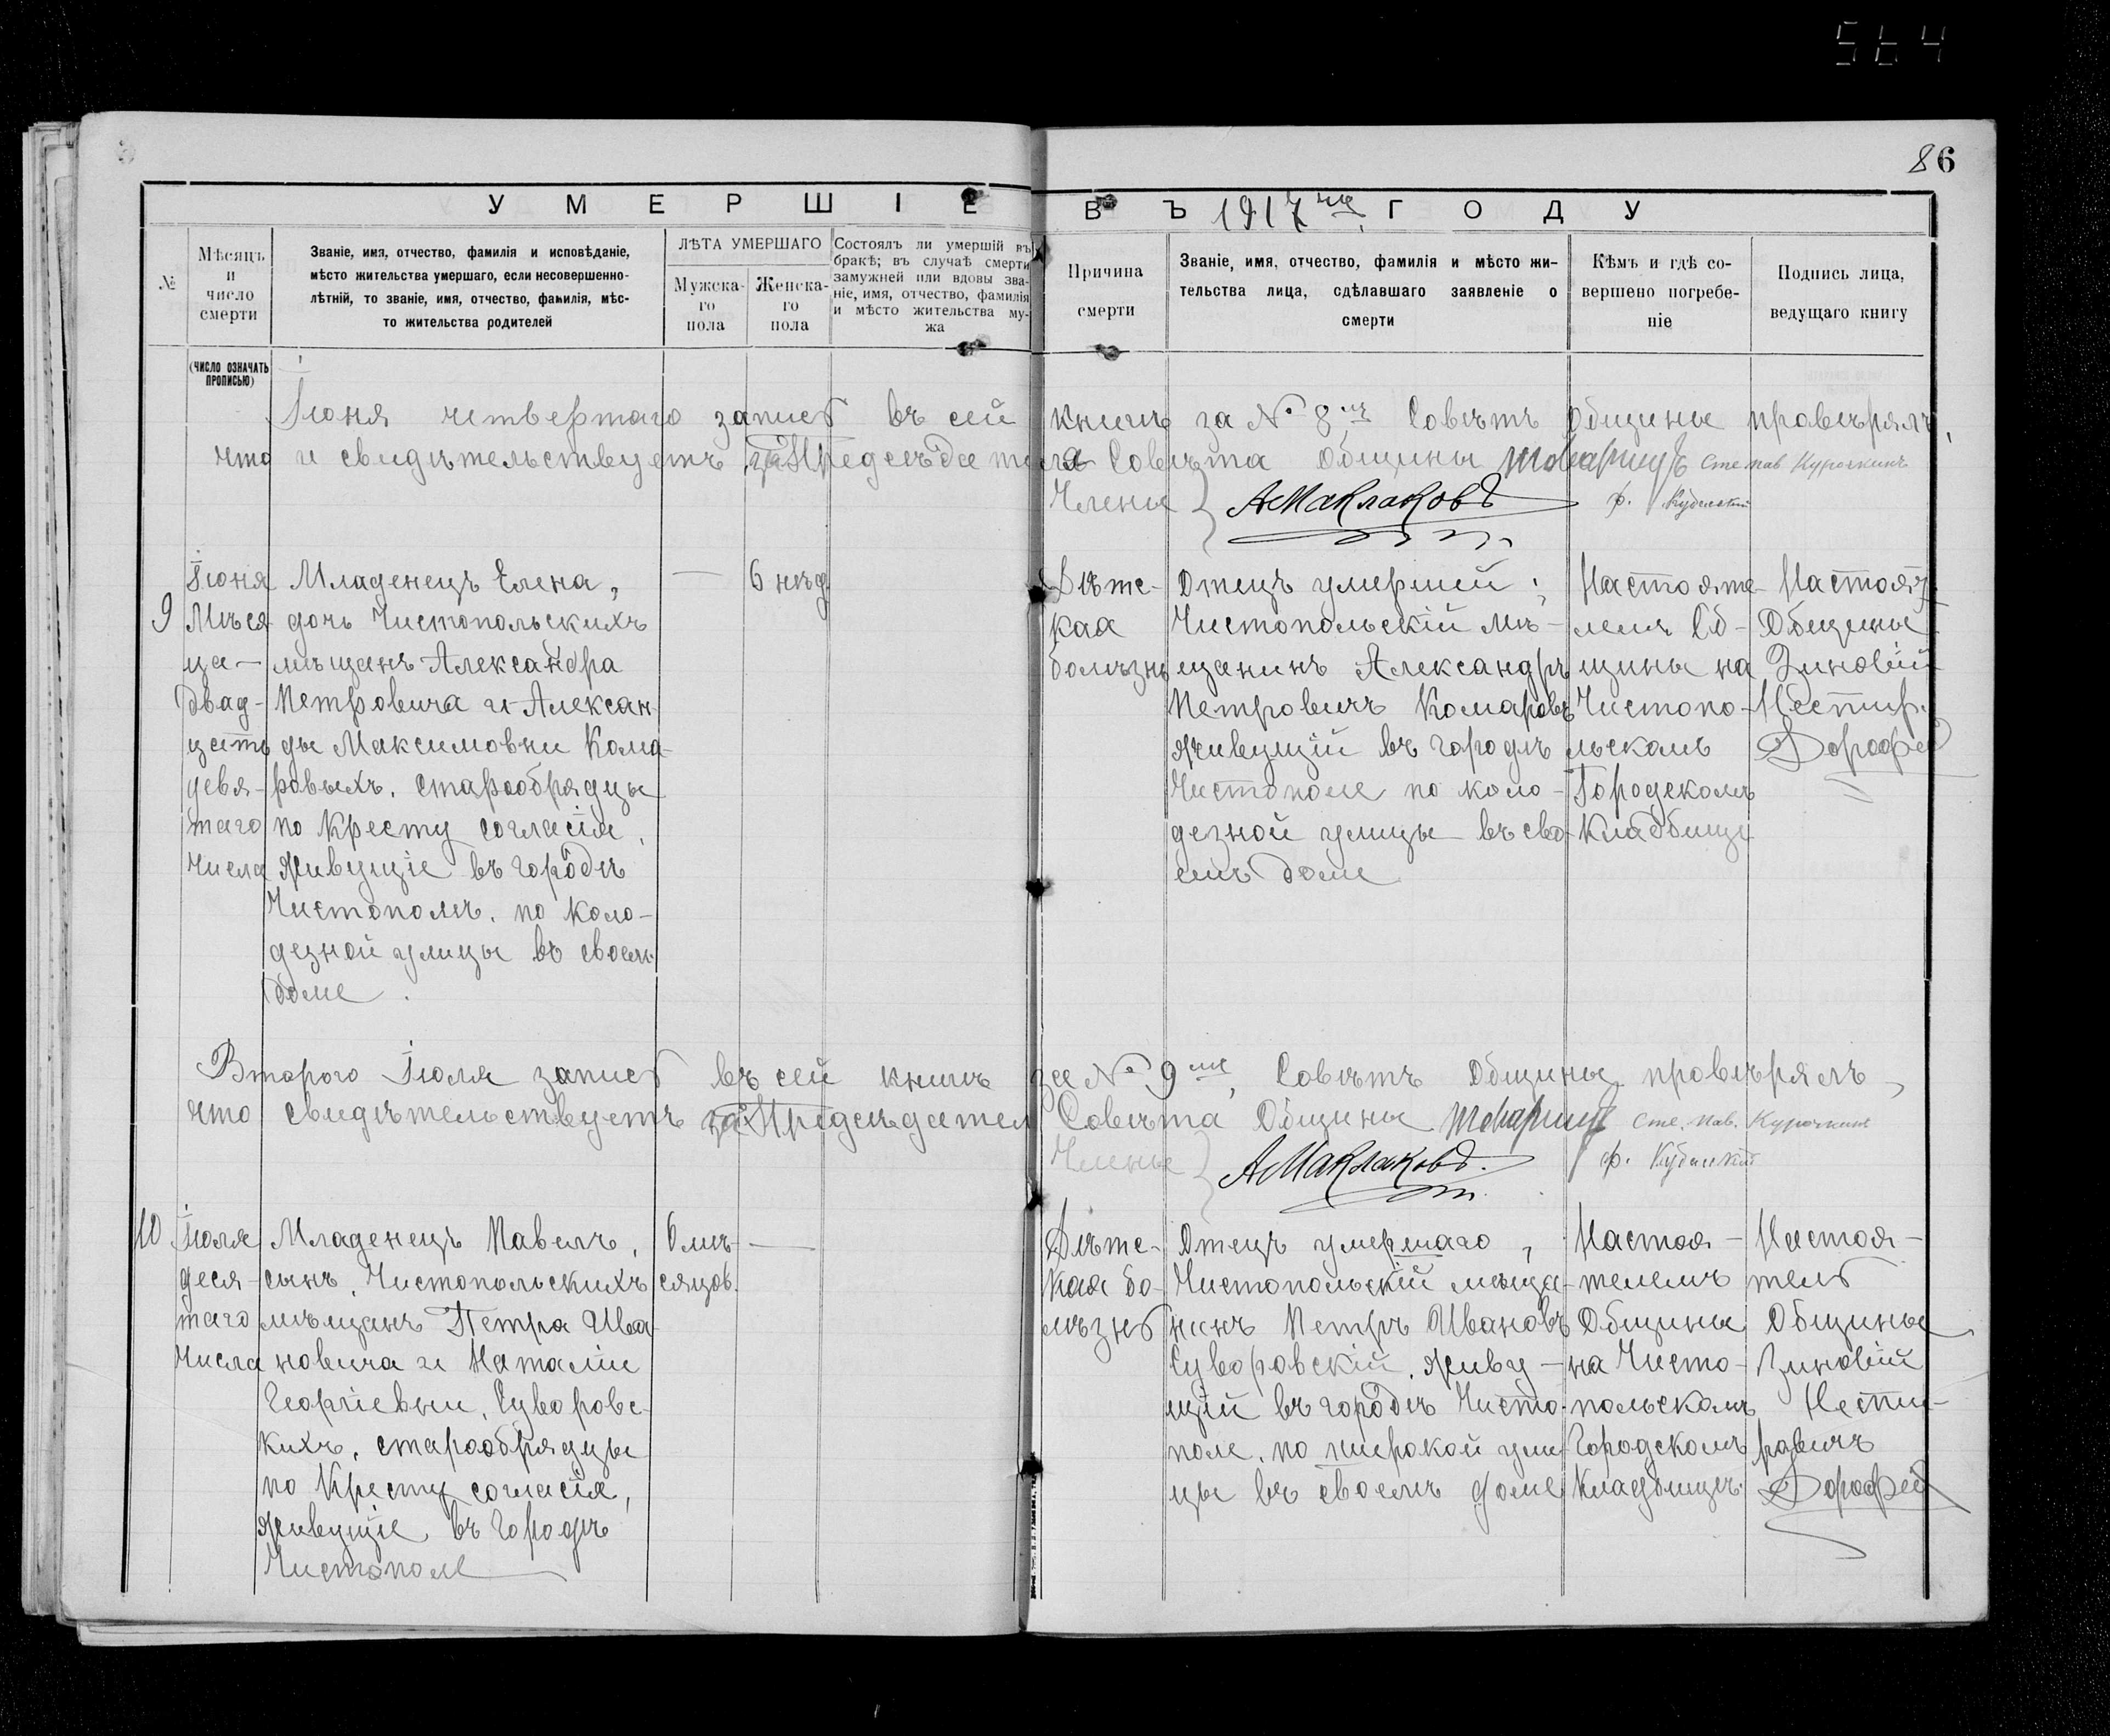 564
86
УМЕРШІЕ ВЪ 1917 мъ ГОДУ
№
Мѣсяцъ
и
число
смерти
Званіе, имя, отчество, фамилія и исповѣданіе,
мѣсто жительства умершаго, если несовершенно-
лѣтній, то званіе, имя, отчество, фамилія, мѣс-
то жительства родителей
ЛѢТА УМЕРШАГО
Мужска-
го
пола
Женска-
го
пола
Состоялъ ли умершій въ
бракѣ; въ случаѣ смерти
замужней или вдовы зва-
ніе, имя, отчество, фамилія
и мѣсто жительства му-
жа
Причина
смерти
Званіе, имя, отчество, фамилія и мѣсто жи-
тельства лица, сдѣлавшаго заявленіе о
смерти
Кѣмъ и гдѣ со-
вершено погребе-
ніе
Подпись лица,
ведущаго книгу
(ЧИСЛО ОЗНАЧАТЬ
ПРОПИСЬЮ)
Іюня четвертаго запись въ сей книгѣ за № 8 мъ Совѣтъ Общины провѣрялъ,
что и свидѣтельствуетъ за Предсѣдателя Совѣта Общины товарищъ Степ Пав Курочкинъ
Члены } АМаклаковъ ф. Кубицкій
9
Іюня
Мѣся
ца —
двад-
цать
девя-
таго
числа
Младенецъ Елена,
дочь Чистопольскихъ
мѣщанъ Александра
Петровича и Алексан
ды Максимовны Кома-
ровыхъ. старообрядцы
по Кресту согласія,
живущіе въ городѣ
Чистополѣ. по коло-
дезной улицы въ своемъ
доме.
—
6 нѣд
Дѣтс-
кая
болѣзнь
Отецъ умершей;
Чистопольскій мѣ-
щанинъ Александръ
Петровичъ Комаровъ
живущій въ городѣ
Чистополе по коло-
дезной улицы въ сво-
емъ доме
Настояте-
лемъ Об-
щины на
Чистопо-
льскомъ
Городскомъ
Кладбище
Настоят.
Общины
Зиновій
Нестир.
Дорофеев
Второго Іюля запись въ сей книгѣ за № 9 мъ, Совѣтъ Общины провѣрялъ,
что свидѣтельствуетъ за Предсѣдател Совѣта Общины товарищъ Сте. Пав. Курочкинъ
Члены } АМаклаковъ. ф. Кубицкій
10
Іюля
деся-
таго
числа
Младенецъ Павелъ,
сынъ, Чистопольскихъ
мѣщанъ Петра Ива-
новича и Наталіи
Георгіевны, Суворовс-
кихъ, старообрядцы
по Кресту согласія,
живущіе въ городѣ
Чистополе
6 мѣ-
сяцов.
—
Дѣтс-
кая бо-
лѣзнь
Отецъ умершаго,
Чистопольскій мѣща-
нинъ Петръ Ивановъ
Суворовскій, живу-
щій въ городѣ Чисто-
поле. по широкой ули
цы въ своемъ доме
Настоя-
телемъ
Общины
на Чисто-
польскомъ
Городскомъ
Кладбищѣ.
Настоя-
тель
Общины
Зиновій
Нести-
ровичъ
Дорофеев